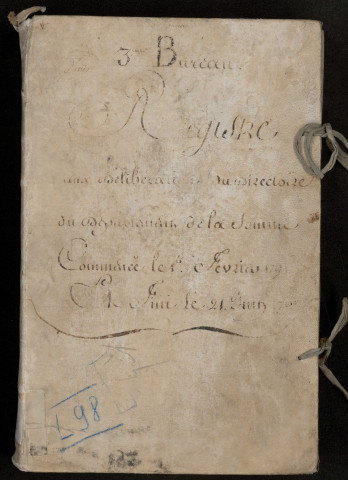 3e Bureau
Registre
aux Deliberations du Directoire
du Département de la Somme
Commencé le 1er Fevrier 179
Et Fini le 21
L98